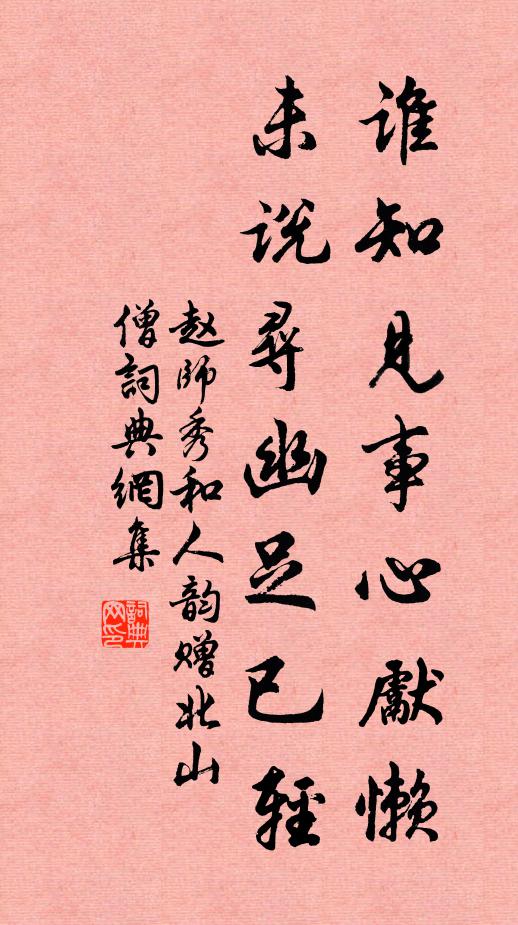 谁知見事心獻懒
未说尋幽足已輕
赵師秀和人韵赠北山
僧詞典網集
詞典网印